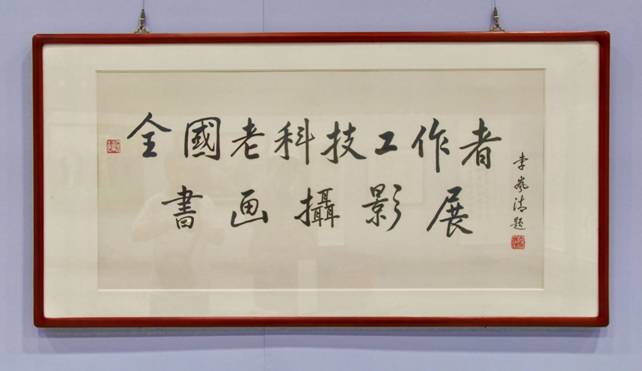 全國老科技工作者
書画攝影展
李岚清題